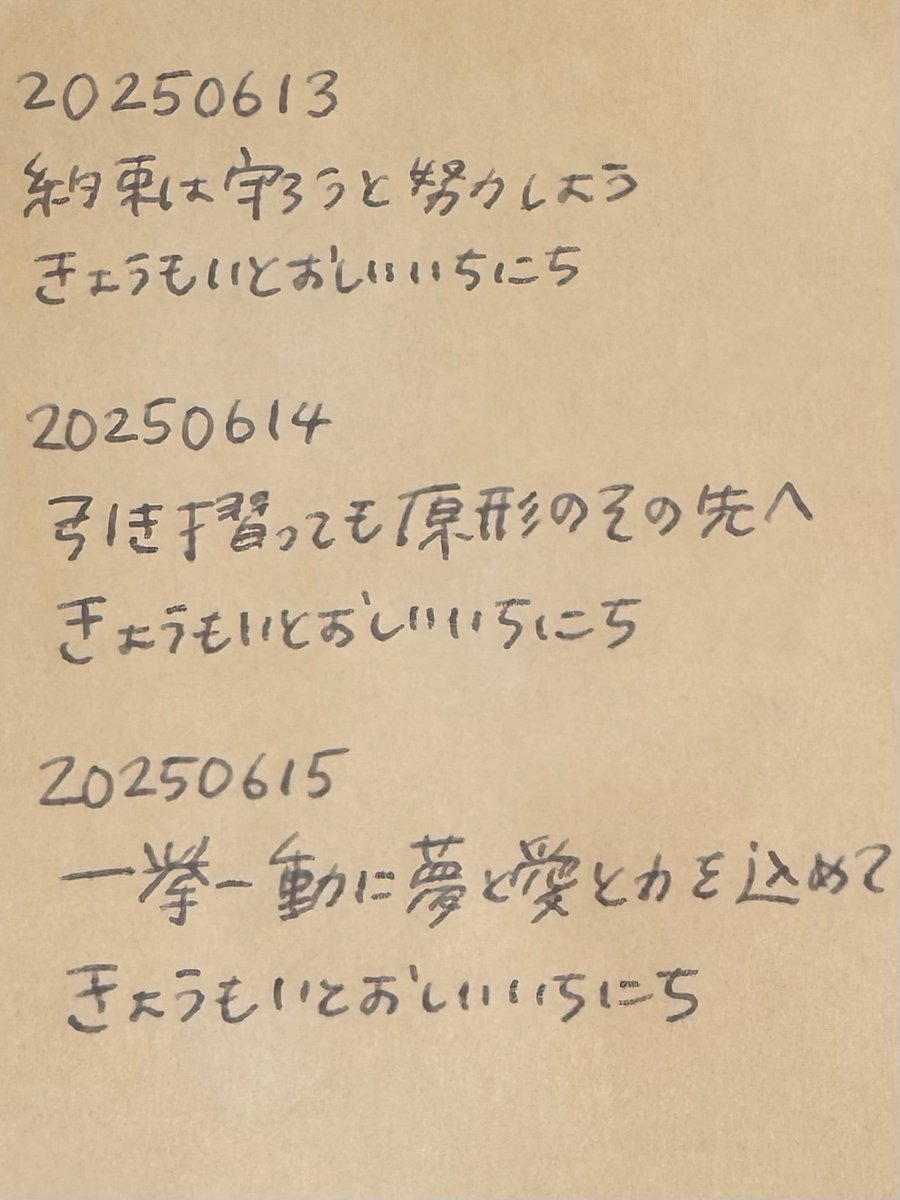 20250613
約束は守ろうと努力しよう
きょうもいとおしいいちにち
20250614
引き摺っても原形のその先へ
きょうもいとおしいいちにち
20250615
一挙一動に夢と愛と力を込めて
きょうもいとおしいいちにち